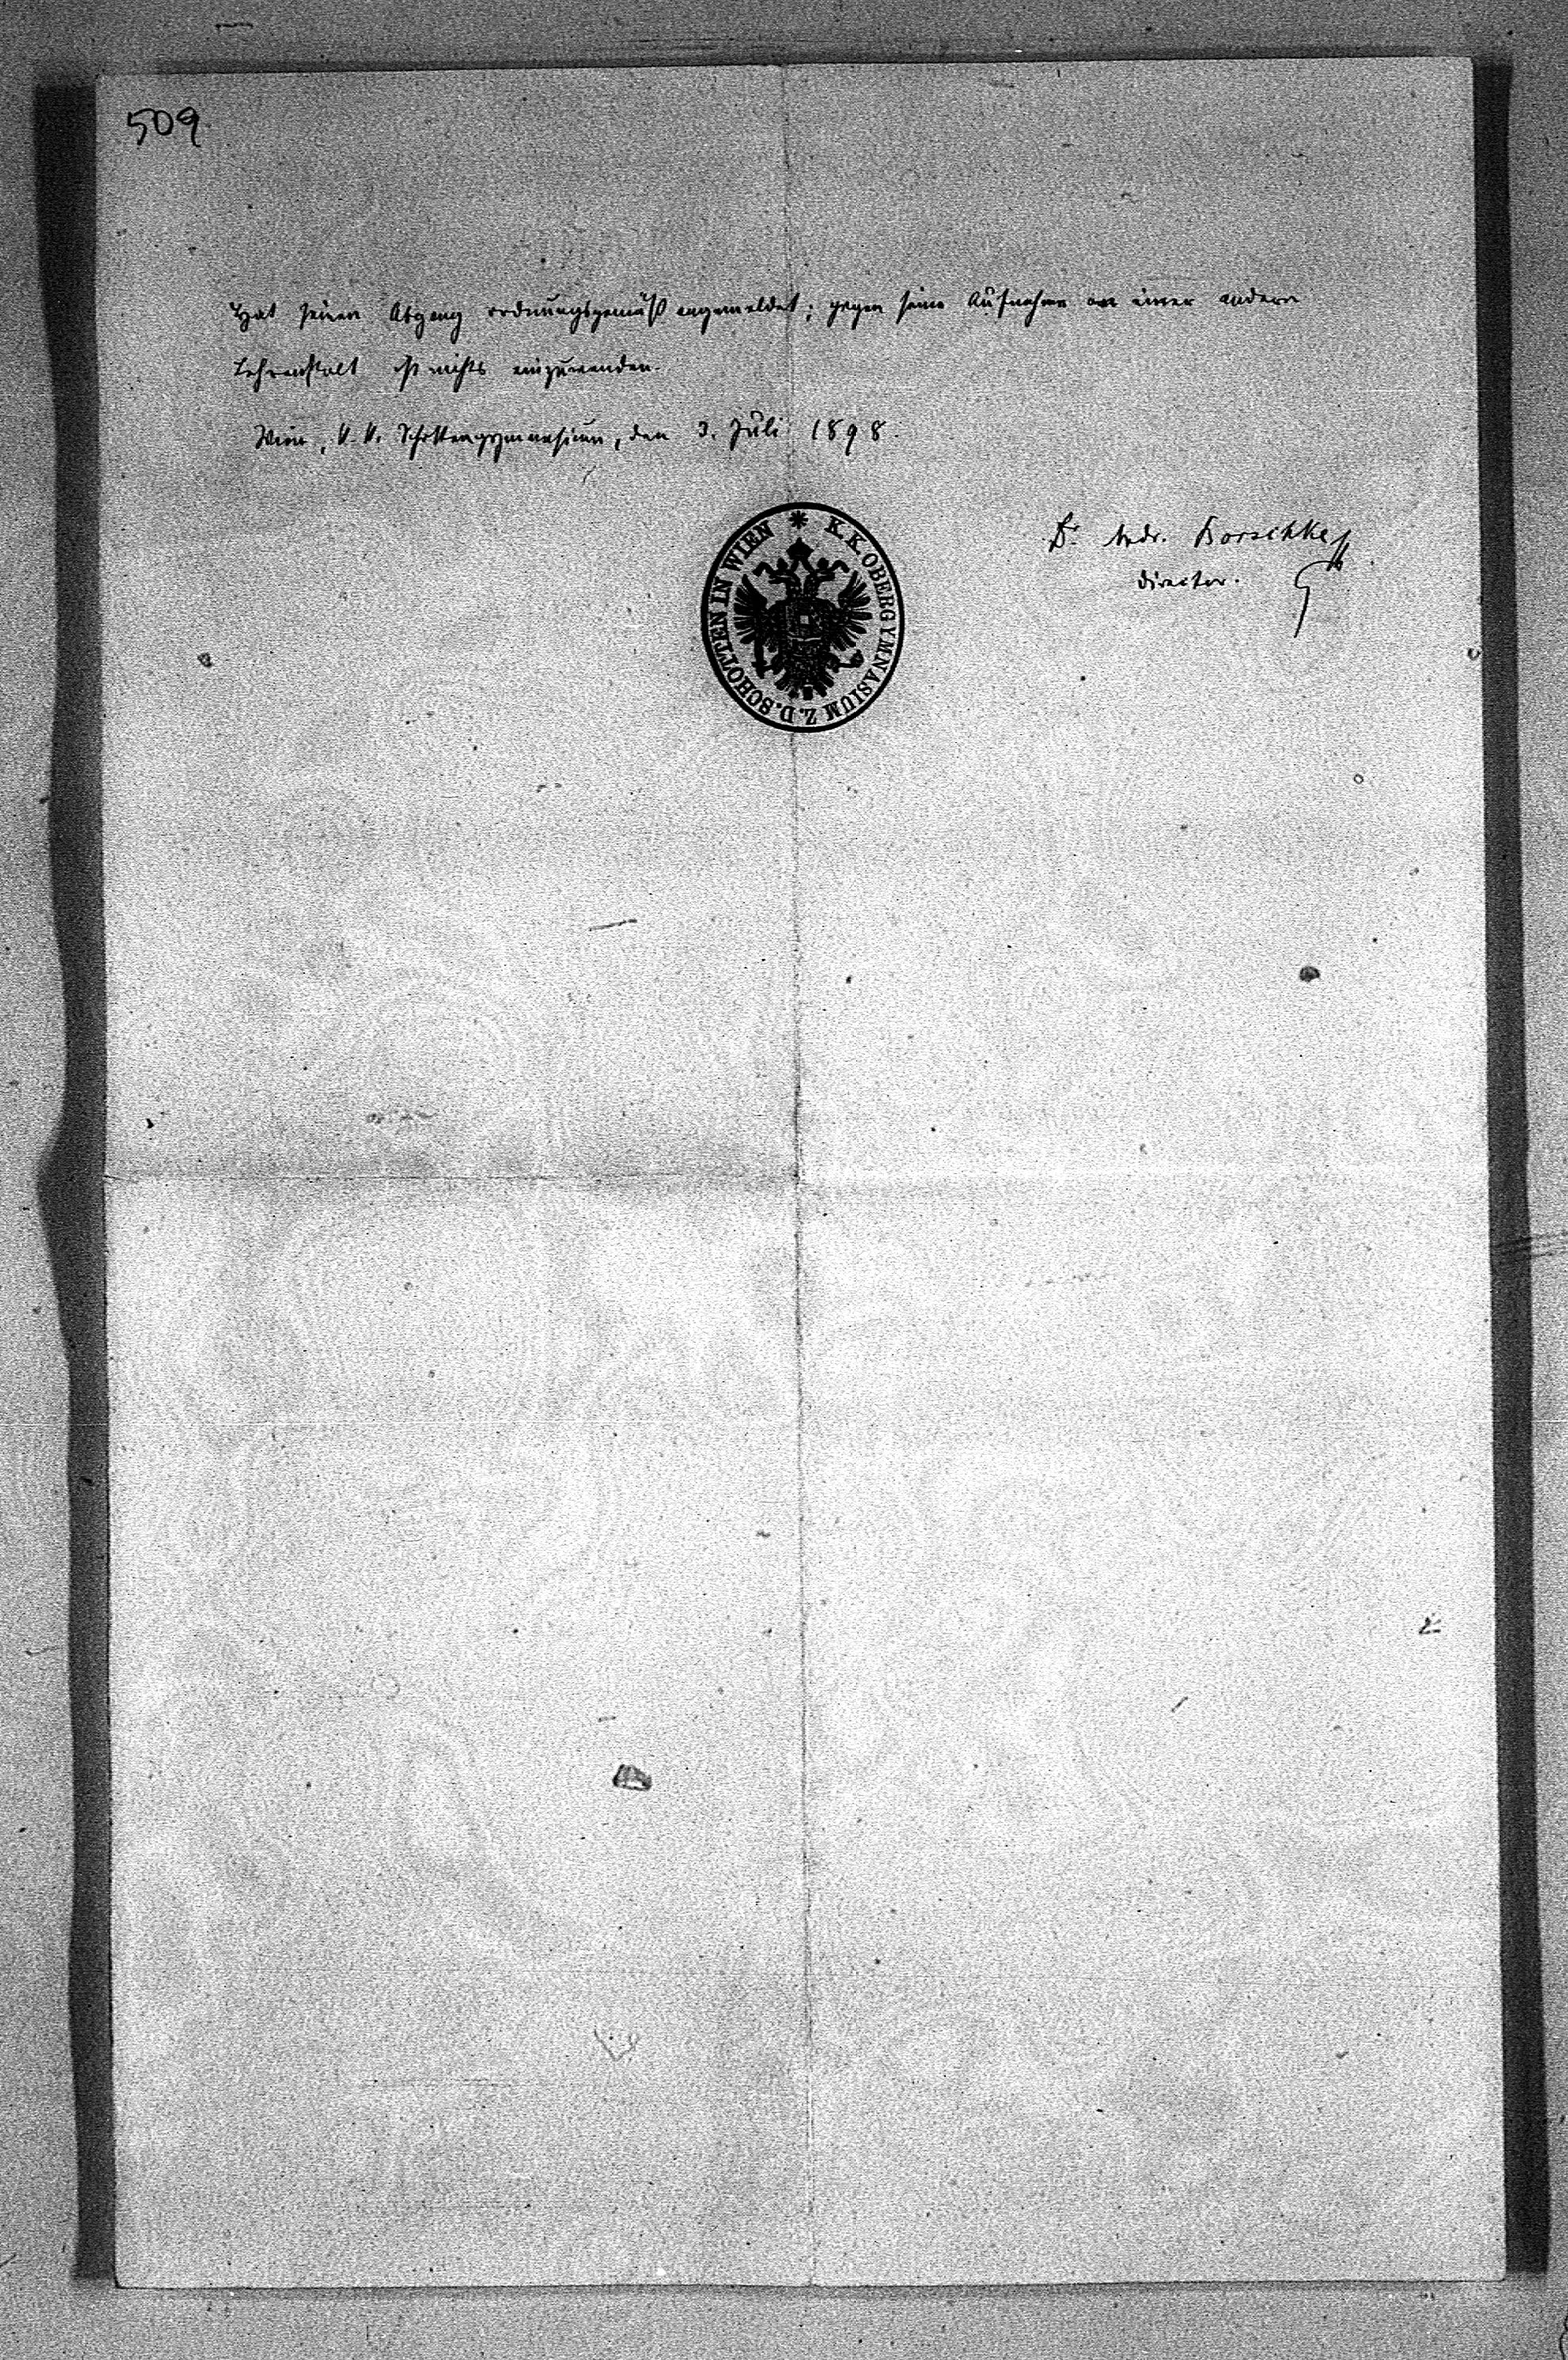 509
Hat seinen Abgang ordnungsgemäß angemeldet; gegen seine Aufnahme an einer andern
Lehranstalt ist nichts einzuwenden.
Wien, k. k. Schottengymnasium, den 3. Juli 1898.
K. K. OBERGYMNASIUM Z. D. SCHOTTEN IN WIEN
Dr. Andr. Borschke
Director.